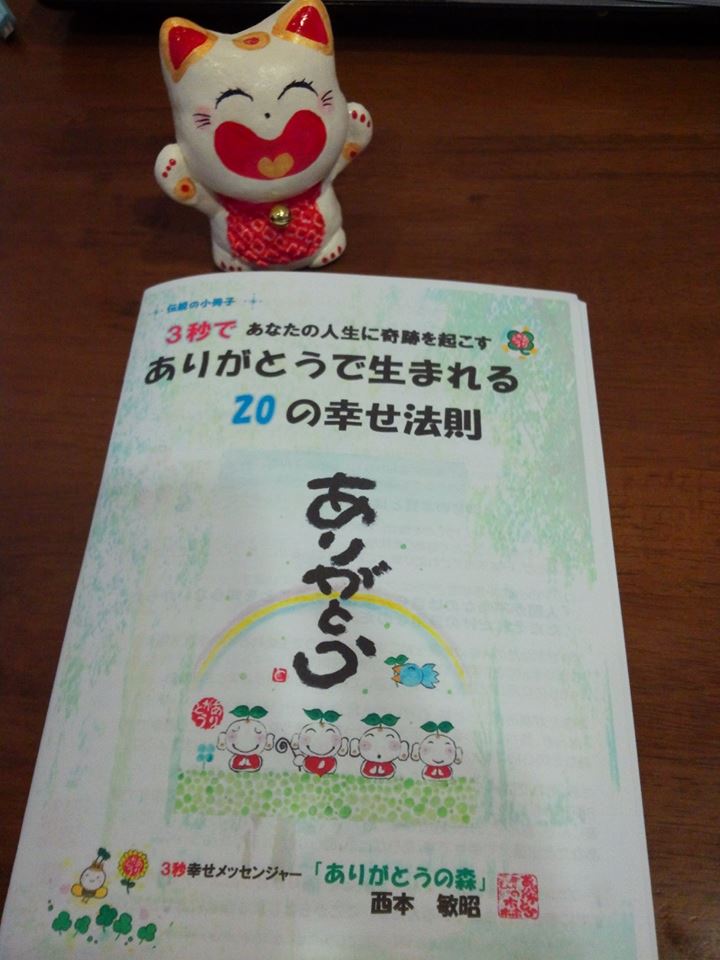 伝説の小冊子
3秒で あなたの人生に奇跡を起こす
ありがとうで生まれる
20の幸せ法則
ありがとう
ありがとう
3秒幸せメッセンジャー「ありがとうの森」
西本 敏昭